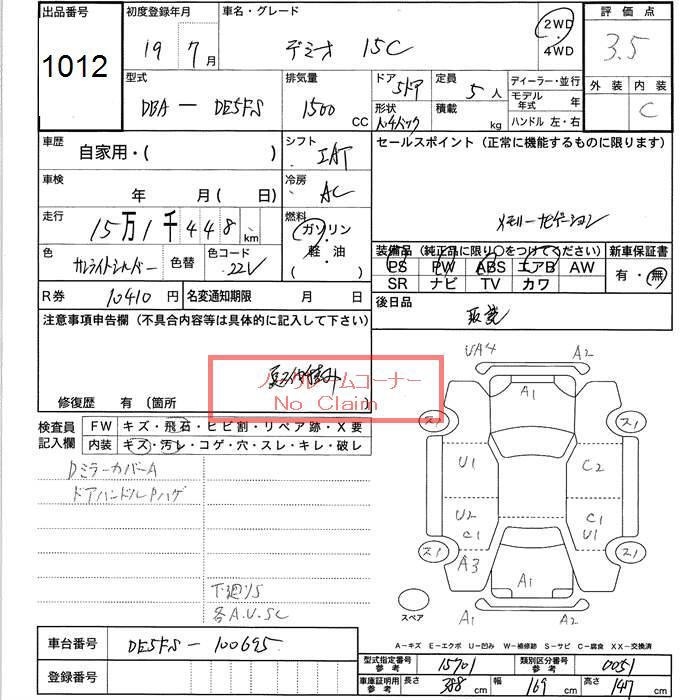 出品番号 初度登録年月 車名・グレード 評価点
1012 19年 7月 デミオ 15C 2WD・4WD 3.5
型式 排気量 ドア 定員 ディーラー・並行 外装 内装
DBA - DE5FS 1500 CC 5ドア 5人 モデル年式 年 C
形状 積載 kg ハンドル 左・右
車歴 自家用・( ) シフト IAT セールスポイント (正常に機能するものに限ります)
車検 年 月( 日) 冷房 AC メモリーナビゲーション
走行 15万1千448km 燃料 ガソリン・軽油 ( )
装備品 (純正品に限り○をつけてください) 新車保証書
色 サンライトシルバー 色替 色コード 22V PS PW ABS エアB AW 有・無
SR ナビ TV カワ
R券 10410円 名変通知期限 月 日 後日品
取説
注意事項申告欄 (不具合内容等は具体的に記入して下さい)
ノークレームコーナー
No Claim
修復歴 有 (箇所
検査員記入欄 FW キズ・飛石・ヒビ割・リペア跡・X要
内装 キズ・汚レ・コゲ・穴・スレ・キレ・破レ
DミラーカバーA
ドアハンドルPハゲ
下廻りS
各A.U.SC
UA4 A2
A1
ス1 ス1
U1 C2
U2 C1
C1 U1
ス1 A3 ス1
A1
A1 A2
スペア
A-キズ E-エクボ U-凹み W-補修跡 S-サビ C-腐食 XX-交換済
車台番号 DE5FS-100695
登録番号
型式指定番号参考 15701 類別区分番号参考 0051
車庫証明用参考 長さ 388cm 幅 169cm 高さ 147cm